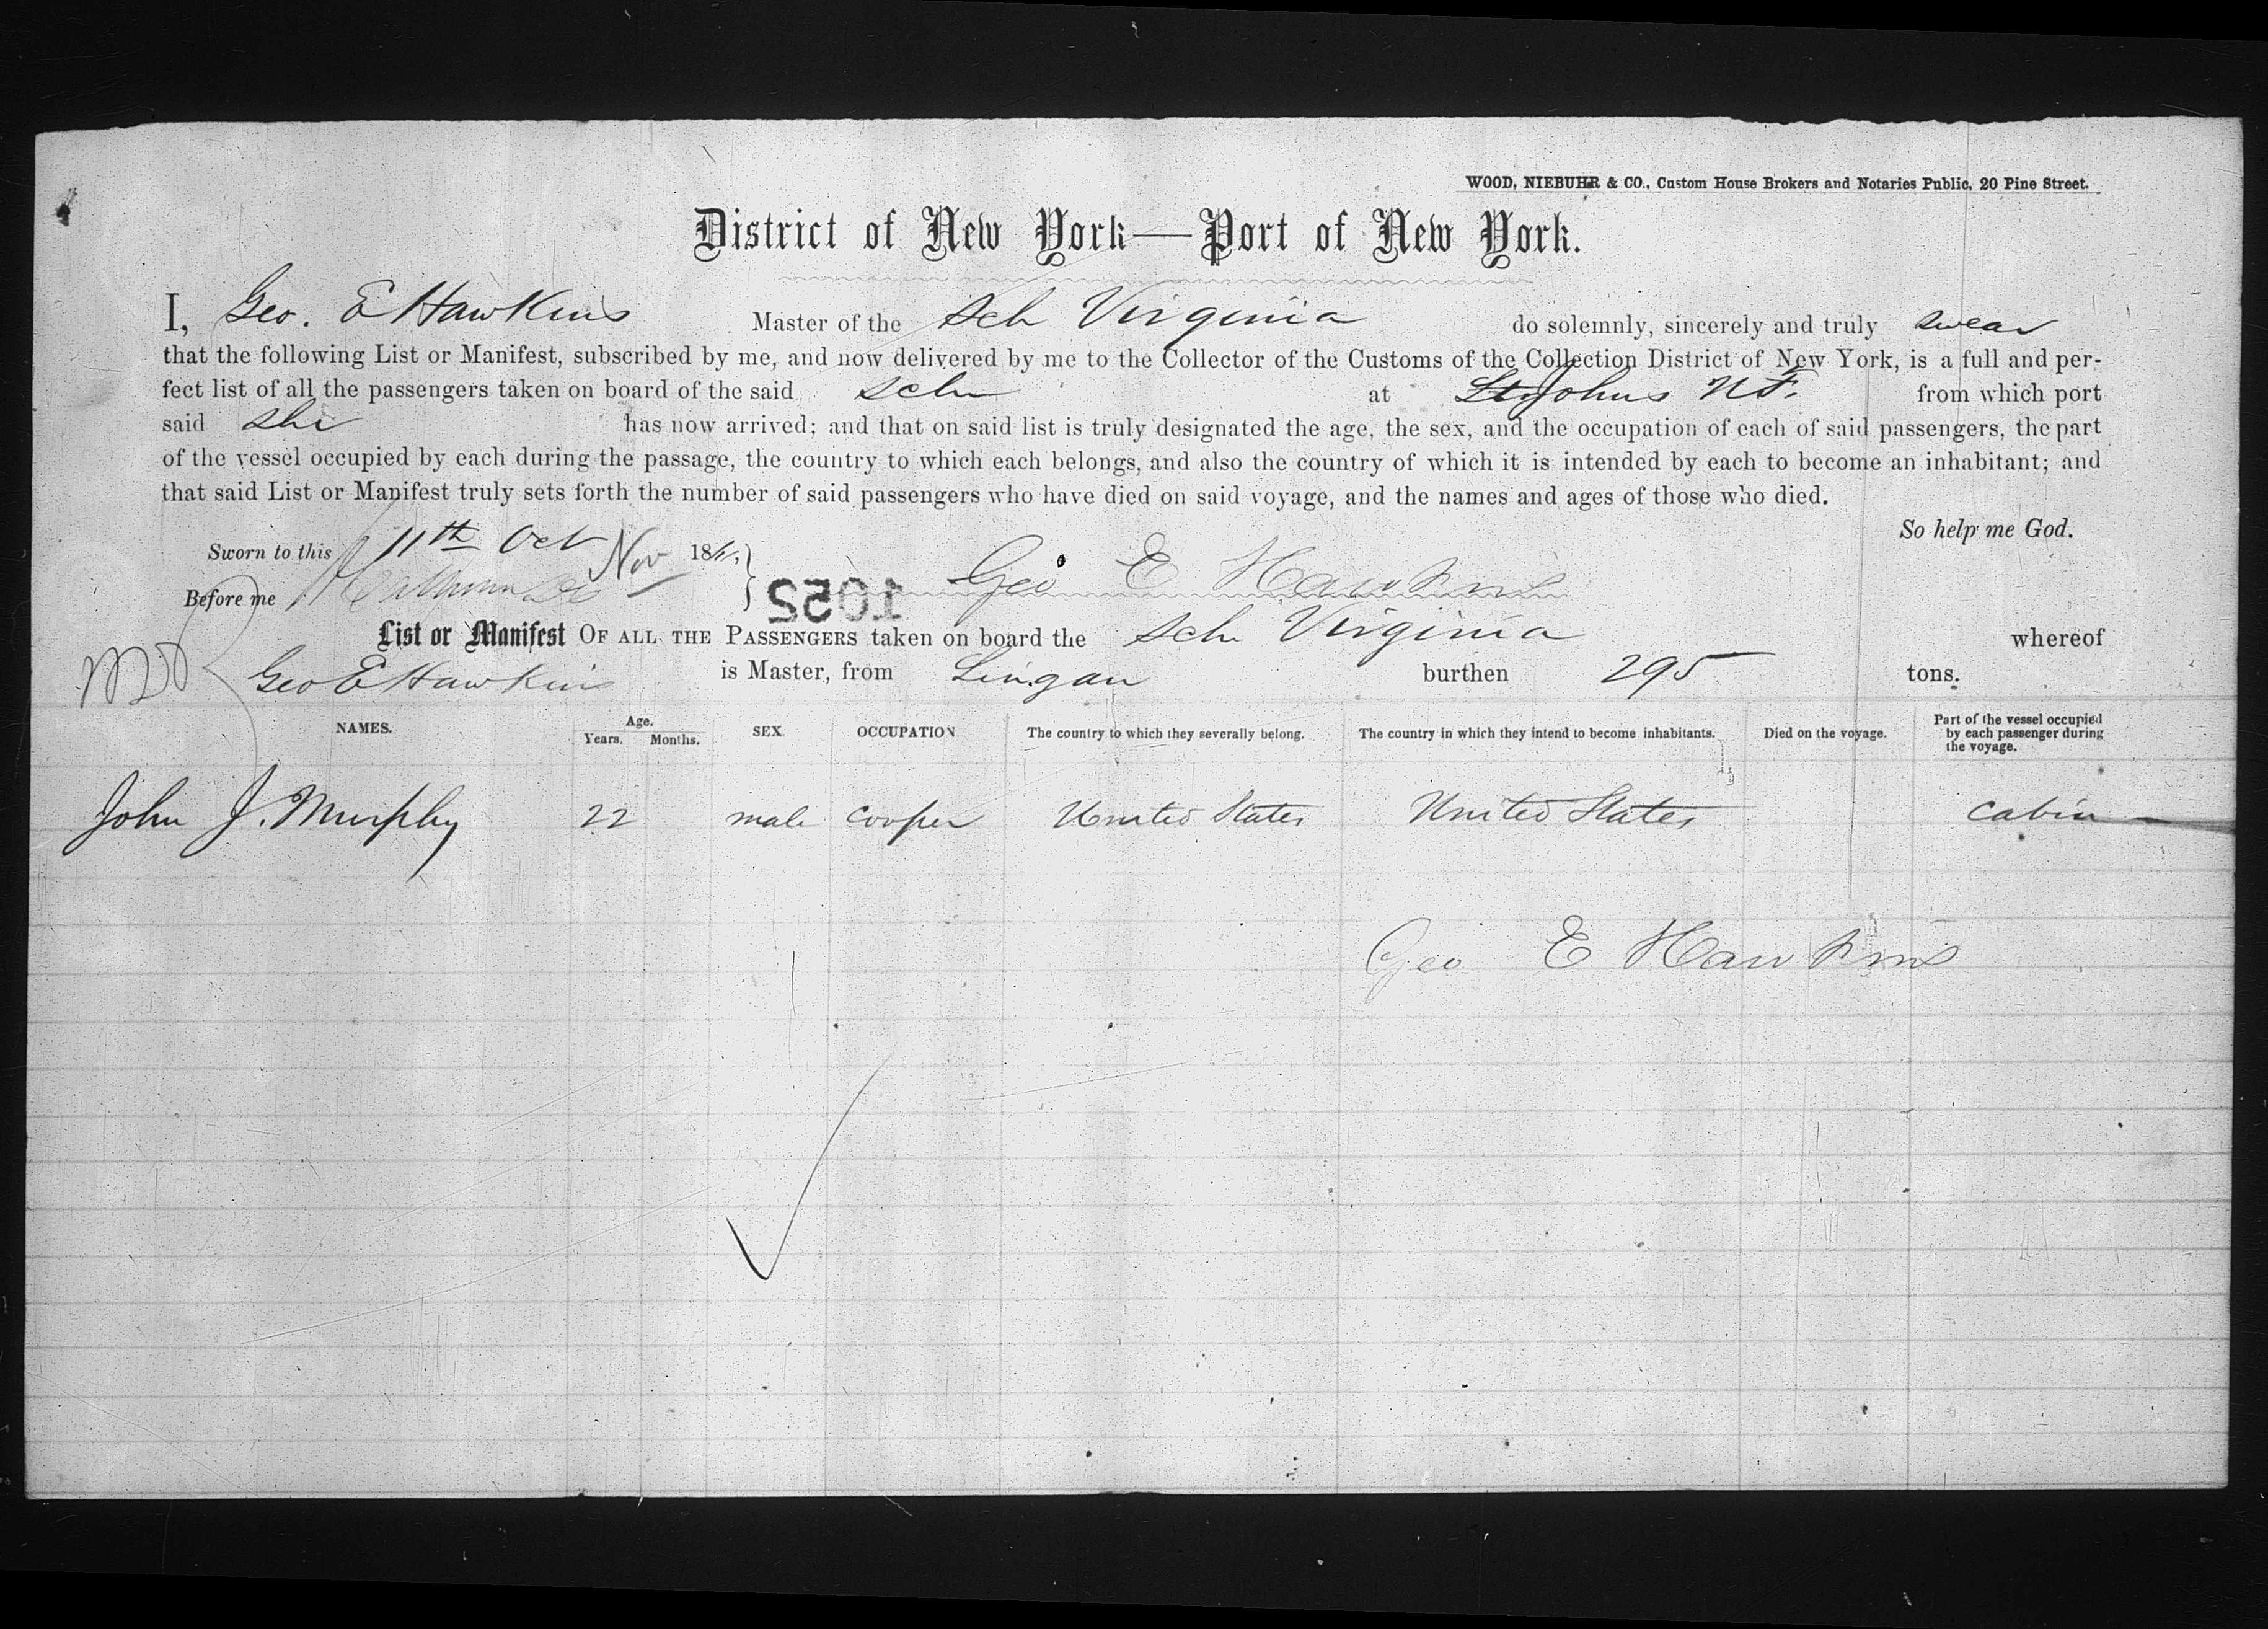 WOOD, NIEBUHR & CO., Custom House Brokers and Notaries Public, 20 Pine Street.
District of New York—Port of New York.
I, Geo. E Hawkins Master of the Sch Virginia do solemnly, sincerely and truly swear
that the following List or Manifest, subscribed by me, and now delivered by me to the Collector of the Customs of the Collection District of New York, is a full and per-
fect list of all the passengers taken on board of the said Sch at St Johns N.F. from which port
said she has now arrived; and that on said list is truly designated the age, the sex, and the occupation of each of said passengers, the part
of the vessel occupied by each during the passage, the country to which each belongs, and also the country of which it is intended by each to become an inhabitant; and
that said List or Manifest truly sets forth the number of said passengers who have died on said voyage, and the names and ages of those who died.
So help me God.
Sworn to this 11th Oct Nov 18
Before me
1052
Geo E Hawkins
List or Manifest OF ALL THE PASSENGERS taken on board the Sch Virginia whereof
Geo E Hawkins is Master, from Lingan burthen 295 tons.
NAMES. Age. Years. Months. SEX. OCCUPATION The country to which they severally belong. The country in which they intend to become inhabitants. Died on the voyage. Part of the vessel occupied by each passenger during the voyage.
John J. Murphy 22 male cooper United States United States cabin
Geo E Hawkins